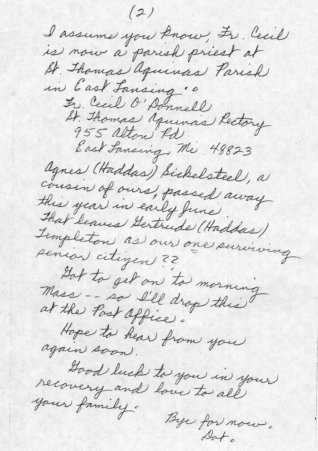 (2)
I assume you know, Fr. Cecil
is now a parish priest at
St. Thomas Aquinas Parish
in East Lansing.
Fr. Cecil O'Donnell
St. Thomas Aquinas Rectory
955 Alton Rd.
East Lansing, Mi 48823
Agnes (Haddas) Sickelsteel, a
cousin of ours, passed away
this year in early June.
That leaves Gertrude (Haddas)
Templeton as our one surviving
senior citizen??
Got to get on to morning
Mass -- so I'll drop this
at the Post Office.
Hope to hear from you
again soon.
Good luck to you in your
recovery and love to all
your family.
Bye for now.
Dot.